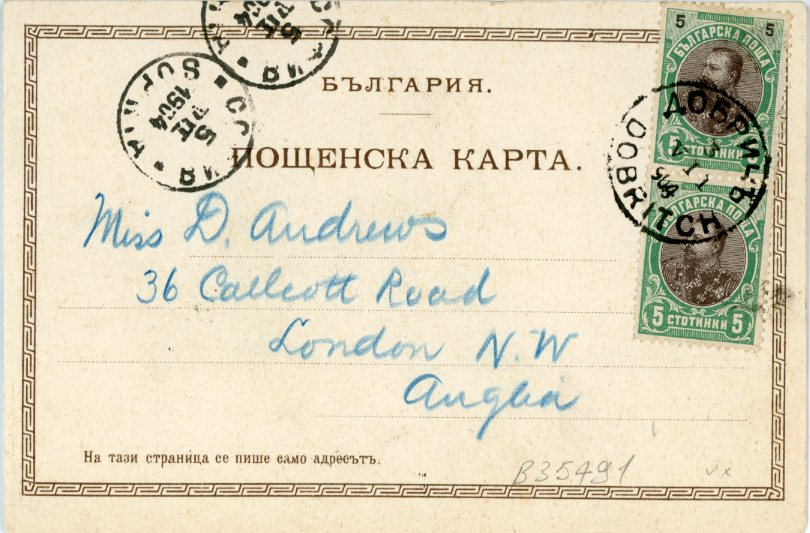 БЪЛГАРИЯ.
ПОЩЕНСКА КАРТА.
5 5
БЪЛГАРСКА ПОЩА
5 СТОТИНКИ
БЪЛГАРСКА ПОЩА
5 СТОТИНКИ 5
ДОБРИЧЪ
DOBRITCH
СОФИЯ
SOPHIA
1904
Miss D. Andrews
36 Callcott Road
London N.W
Anglia
На тази страница се пише само адресътъ.
B35491